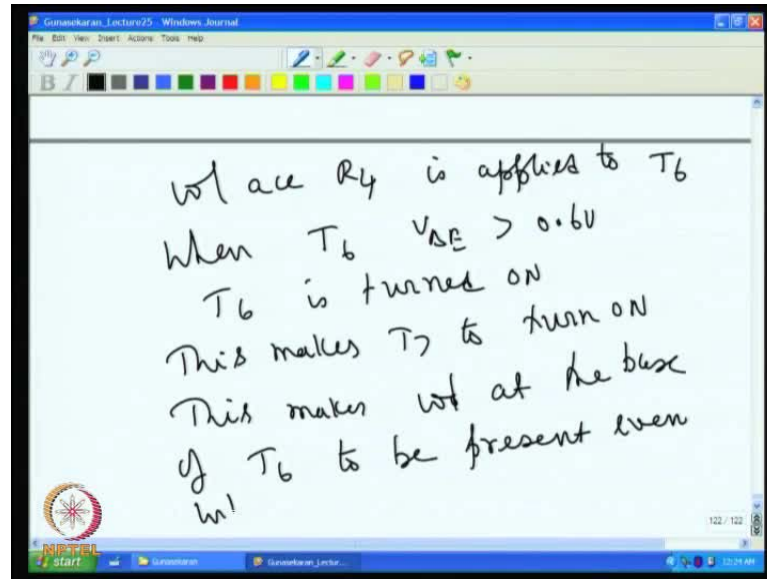 Gunasekaran_Lecture25 - Windows Journal
File Edit View Insert Actions Tools Help
B I
vol ace R4 is applied to T6
When T6 VBE > 0.6V
T6 is turned ON
This makes T7 to turn ON
This makes vol at the base
of T6 to be present even
122 / 122
NPTEL
start Gunasekaran Gunasekaran_Lectur... 12:24 AM